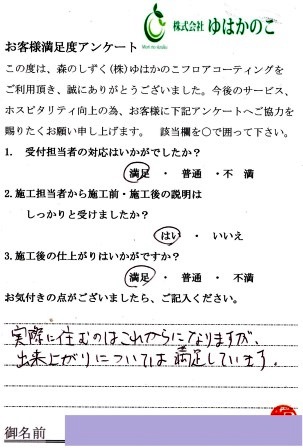 Mori no sizuku
株式会社 ゆはかのこ
お客様満足度アンケート
この度は、森のしずく(株)ゆはかのこフロアコーティングを
ご利用頂き、誠にありがとうございました。今後のサービス、
ホスピタリティ向上の為、お客様に下記アンケートへご協力を
賜りたくお願い申し上げます。 該当欄を○で囲って下さい。
1. 受付担当者の対応はいかがでしたか?
満足 ・ 普通 ・ 不満
2.施工担当者から施工前・施工後の説明は
しっかりと受けましたか?
はい ・ いいえ
3.施工後の仕上がりはいかがですか?
満足 ・ 普通 ・ 不満
お気付きの点がございましたら、ご記入ください。
実際に住むのはこれからになりますが、
出来上がりについては満足しています。
御名前